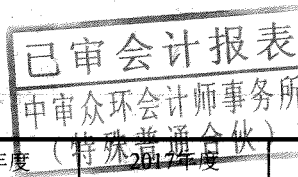 已审会计报表
中审众环会计师事务所
（特殊普通合伙）
年度 2017年度